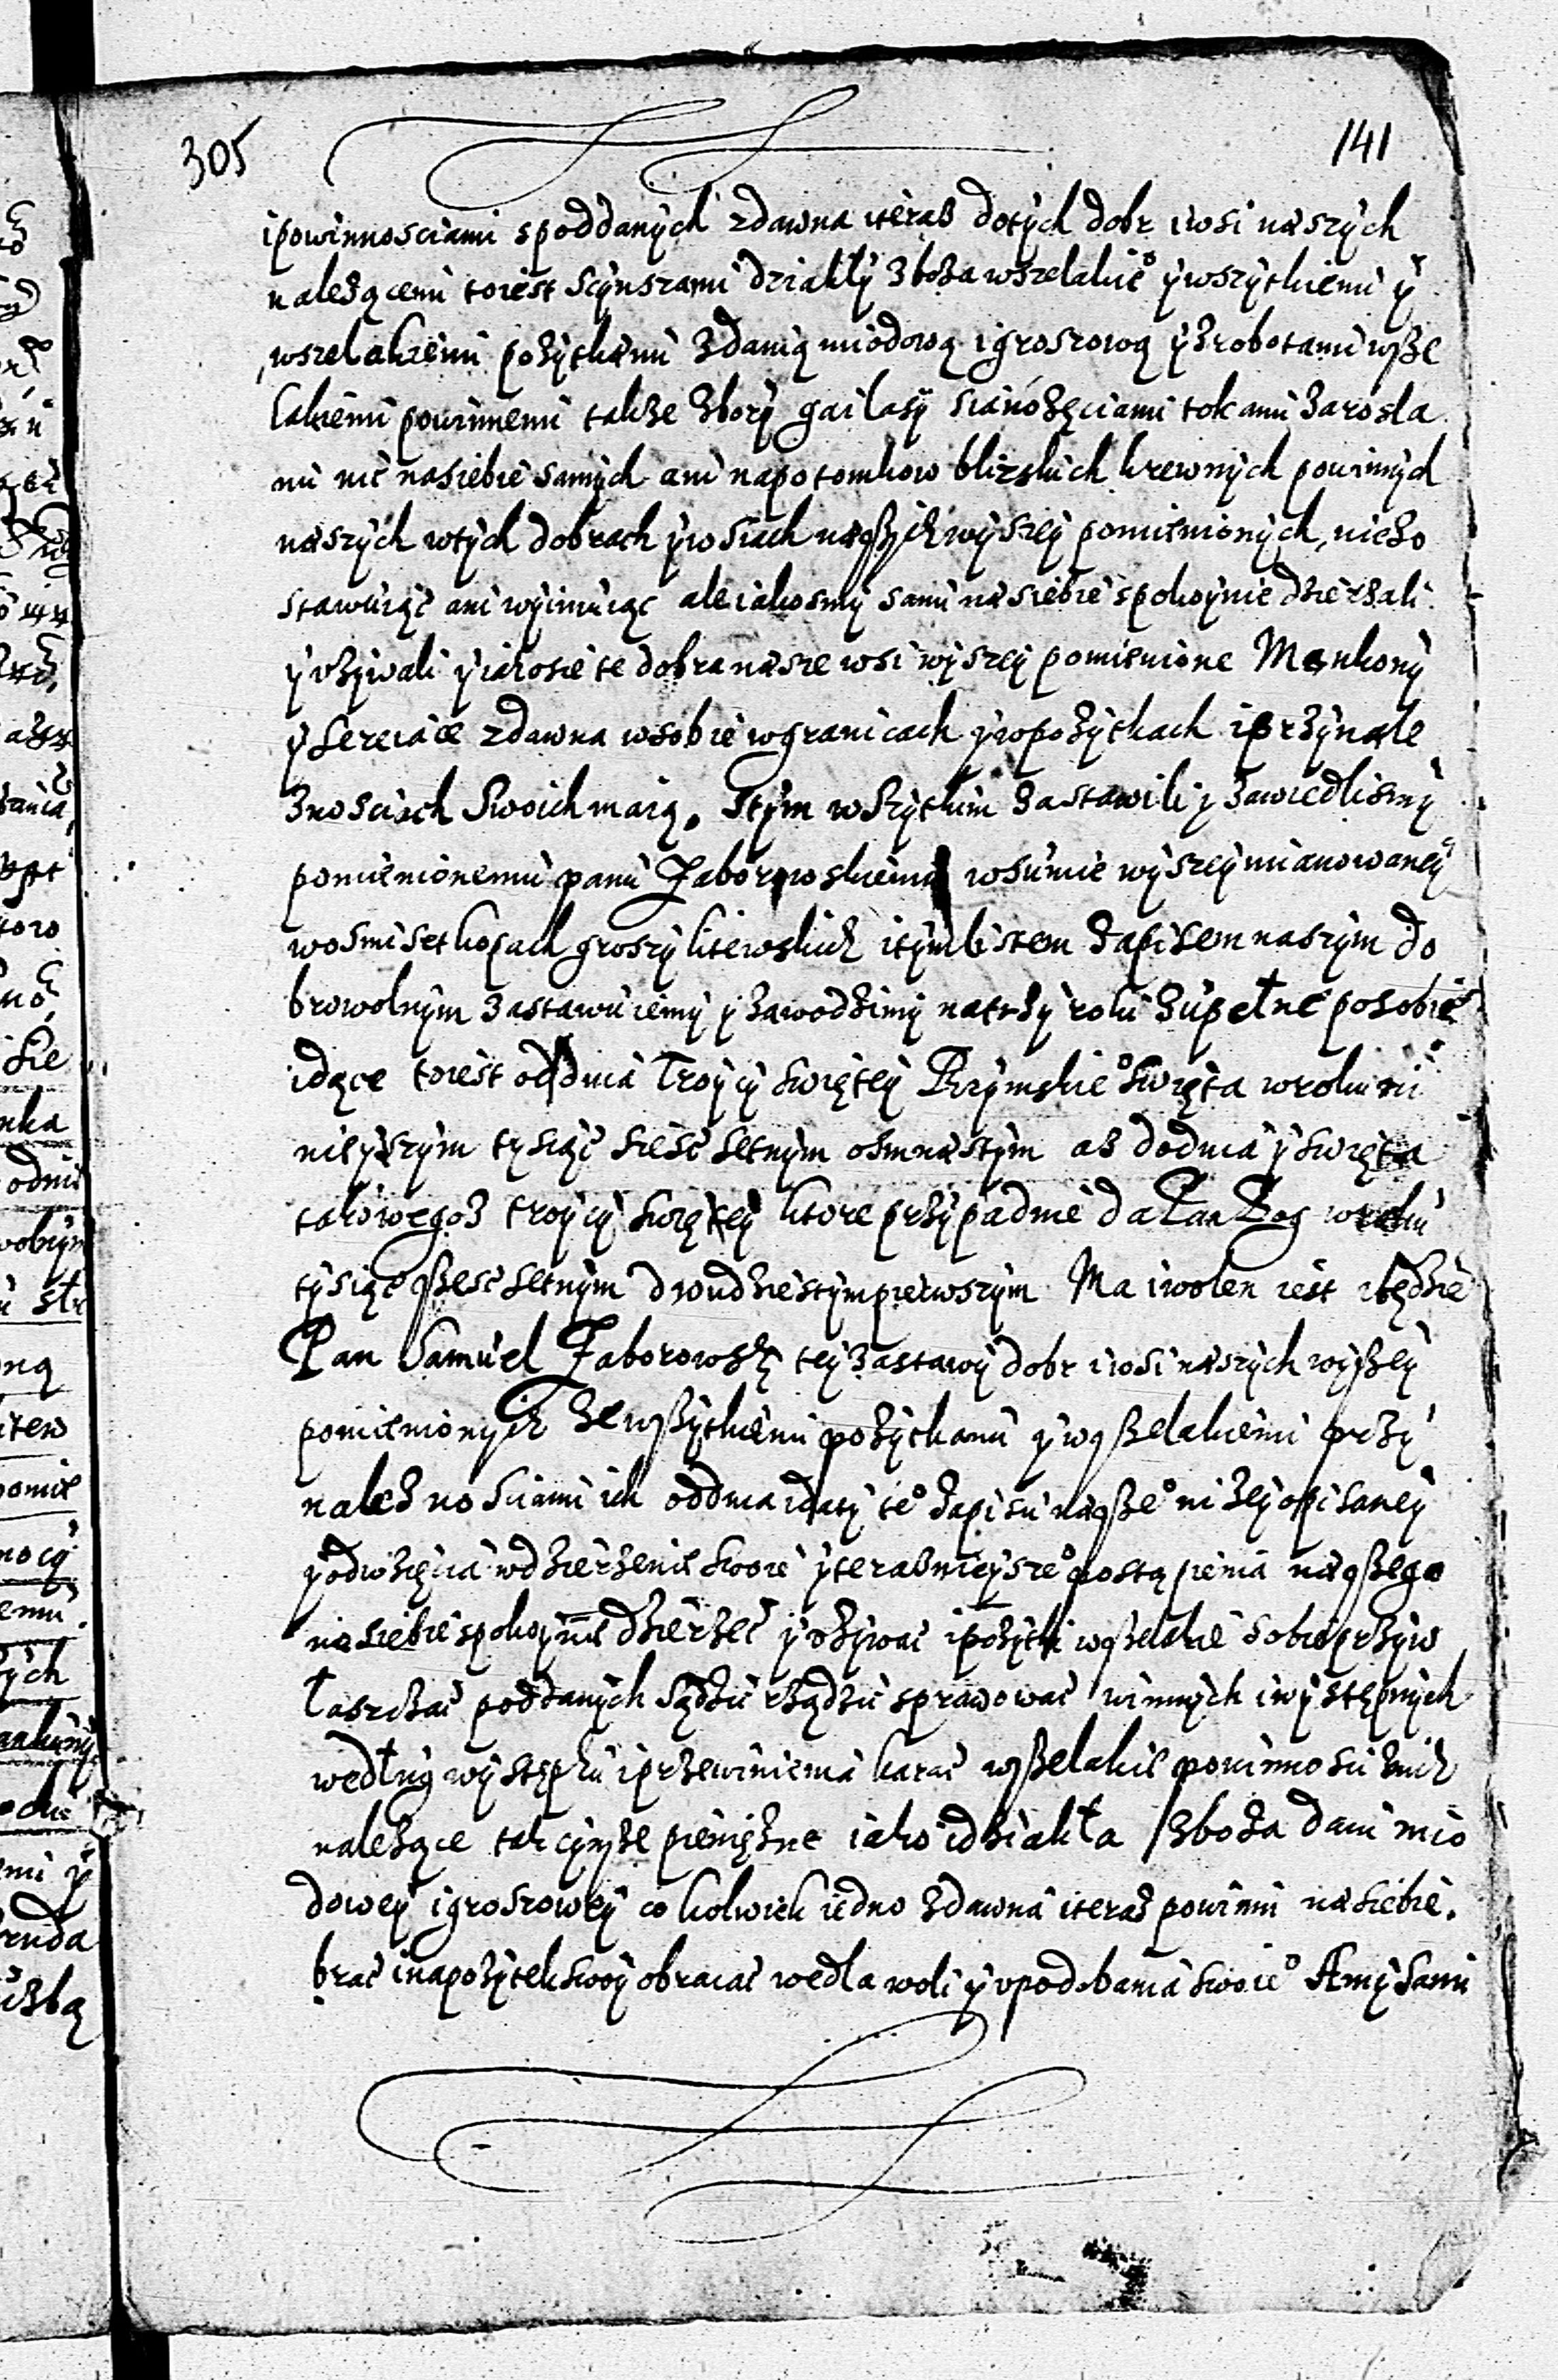 305
141
ipowinnosciami spoddanych zdawna iteraz dotych dobr iwsi naszych
należącemi toiest scynszami dziakły zboża wszelakie° ywszytkiemi y
wszelakiemi pożytkami zdanią miodową igroszową yzrobotami wsze
lakiemi powinnemi także zbory gai lasy sianożęciami tokami zarosla
mi nic nasiebie samych ani napotomkow blizskich krewnych powinnych
naszych wtych dobrach ywsiach naszych wyszey pomienionych, niezo
stawuiąc ani wyimuiąc ale iakosmy sami nasiebie spokoynie dzierżali
yvżywali yiakosie te dobra nasze wsi wyszey pomienione Mankony
y Serciaie zdawna wsobie wgranicach ywpożytkach iprzynale
żnosciach Swoich maią. Stym wszytkim zastawili y zawiedlismy
pomienionemu panu Zaborowskiemu wsumie wyszey mianowaney
wosmiset kopach groszy litewskich itym listem zapisem naszym do
browolnym zastawuiemy y zawodzimy natrzy roki zupełne posobie
idące toiest oddnia Troycy Swiętey Rzymskie° Swięta wroku ni
nieyszym tysiąc sześc setnym osmnastym aż dodnia y swięta
takowegoż troycy swiętey ktore przypadnie da Pan Bog wroku
tysiąc szesc setnym dwudziestympierwszym Ma iwolen iest ibędzie
Pan Samuel Zaborowsky tey zastawy dobr iwsi naszych wyszey
pomienionych zewszytkiemi pożytkami y wszelakiemi przy
należnosciami ich oddnia idaty te° zapisu nasze° niżey opisaney
yodwzięcia wdzierżenie swoie yteraznieysze° postąpienia naszego
nasiebie spokoynie dzierżec yvżywac ipożytki wszelakie sobie przyw
łaszczac poddanych sądzic rządzic sprawowac winnych iwystępnych
według występku iprzewinienia karac wszelakie powinnosci znich
należące tak cynsze pieniężne iako idziakła zboża dani mio
dowey igroszowey co kolwiek iedno zdawna iteraz powinni nasiebie.
brac inapożytek swoy obracac wedla woli yvpodobania swoie° Amy sami